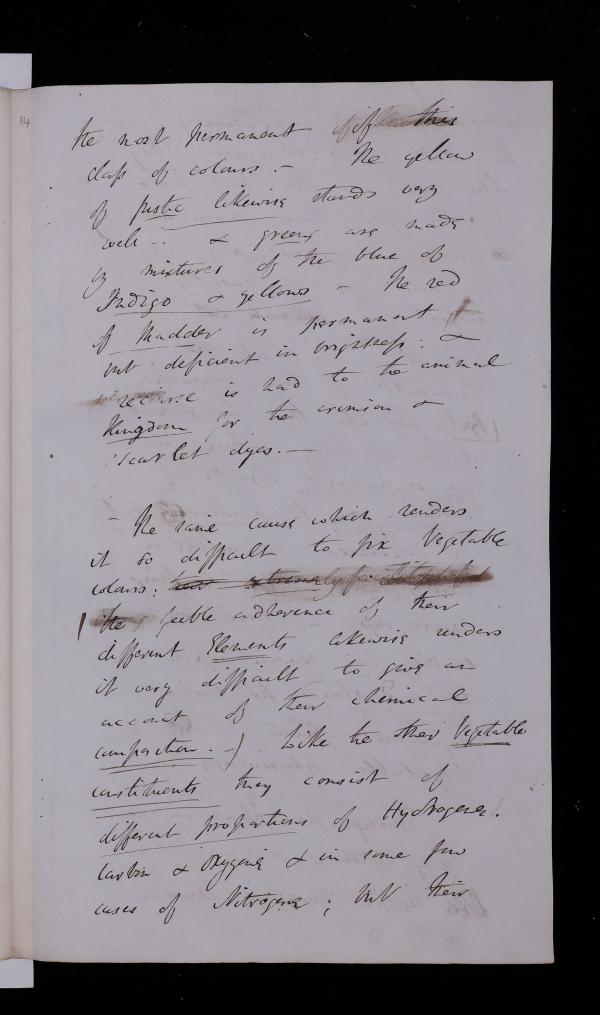 14
the most permanent of this
class of colours. – The yellow
of fustic likewise stands very
well – & greens are made
by mixtures of the blue of
Indigo & yellows – The red
of Madder is permanent
but deficient in brightness: &
recourse is had to the animal
Kingdom for the crimson &
scarlet dyes. —
– The same cause which renders
it so difficult to fix Vegetable
colours;
the feeble adherence of their
different Elements likewise renders
it very difficult to give an
account of their chemical
composition. –) Like the other Vegetable
constituents they consist of
different proportions of Hydrogene.
Carbon & Oxygene & in some few
cases of Nitrogene; but their